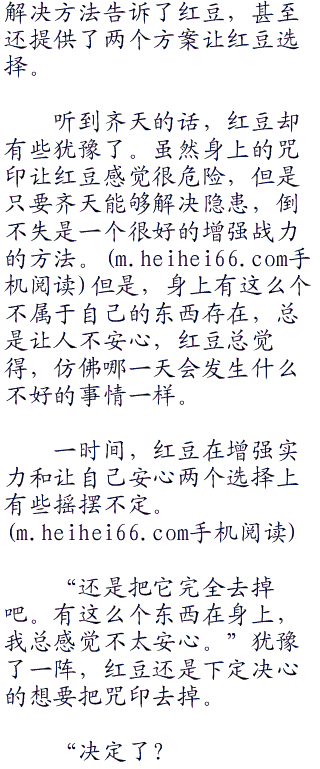 解决方法告诉了红豆，甚至
还提供了两个方案让红豆选
择。
听到齐天的话，红豆却
有些犹豫了。虽然身上的咒
印让红豆感觉很危险，但是
只要齐天能够解决隐患，倒
不失是一个很好的增强战力
的方法。(m.heihei66.com手
机阅读)但是，身上有这么个
不属于自己的东西存在，总
是让人不安心，红豆总觉
得，仿佛哪一天会发生什么
不好的事情一样。
一时间，红豆在增强实
力和让自己安心两个选择上
有些摇摆不定。
(m.heihei66.com手机阅读)
“还是把它完全去掉
吧。有这么个东西在身上，
我总感觉不太安心。”犹豫
了一阵，红豆还是下定决心
的想要把咒印去掉。
“决定了？